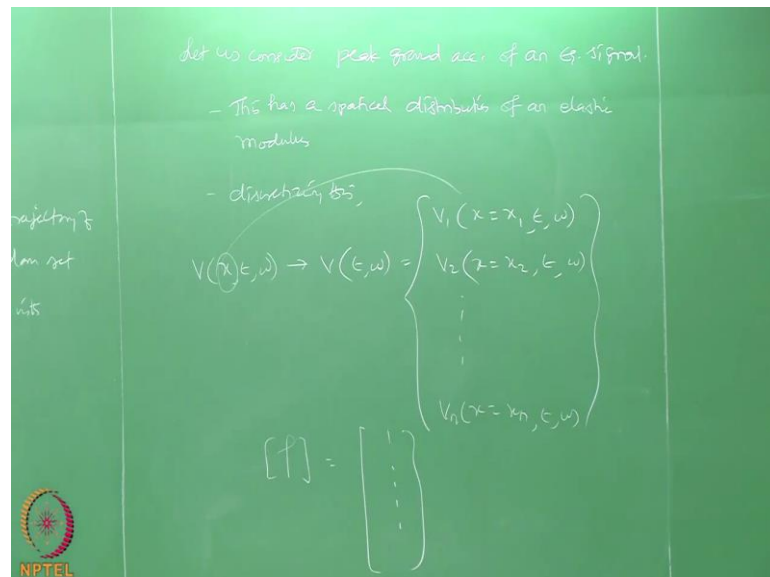 Let us consider peak ground acc. of an Eq. signal.
- This has a spatial distribution of an elastic
modulus
- discretizing this,
trajectory of
set
V(x, t, ω) → V(t, ω) = { V₁(x = x₁, t, ω)
V₂(x = x₂, t, ω)
Vₙ(x = xₙ, t, ω) }
[f] = [ ]
NPTEL